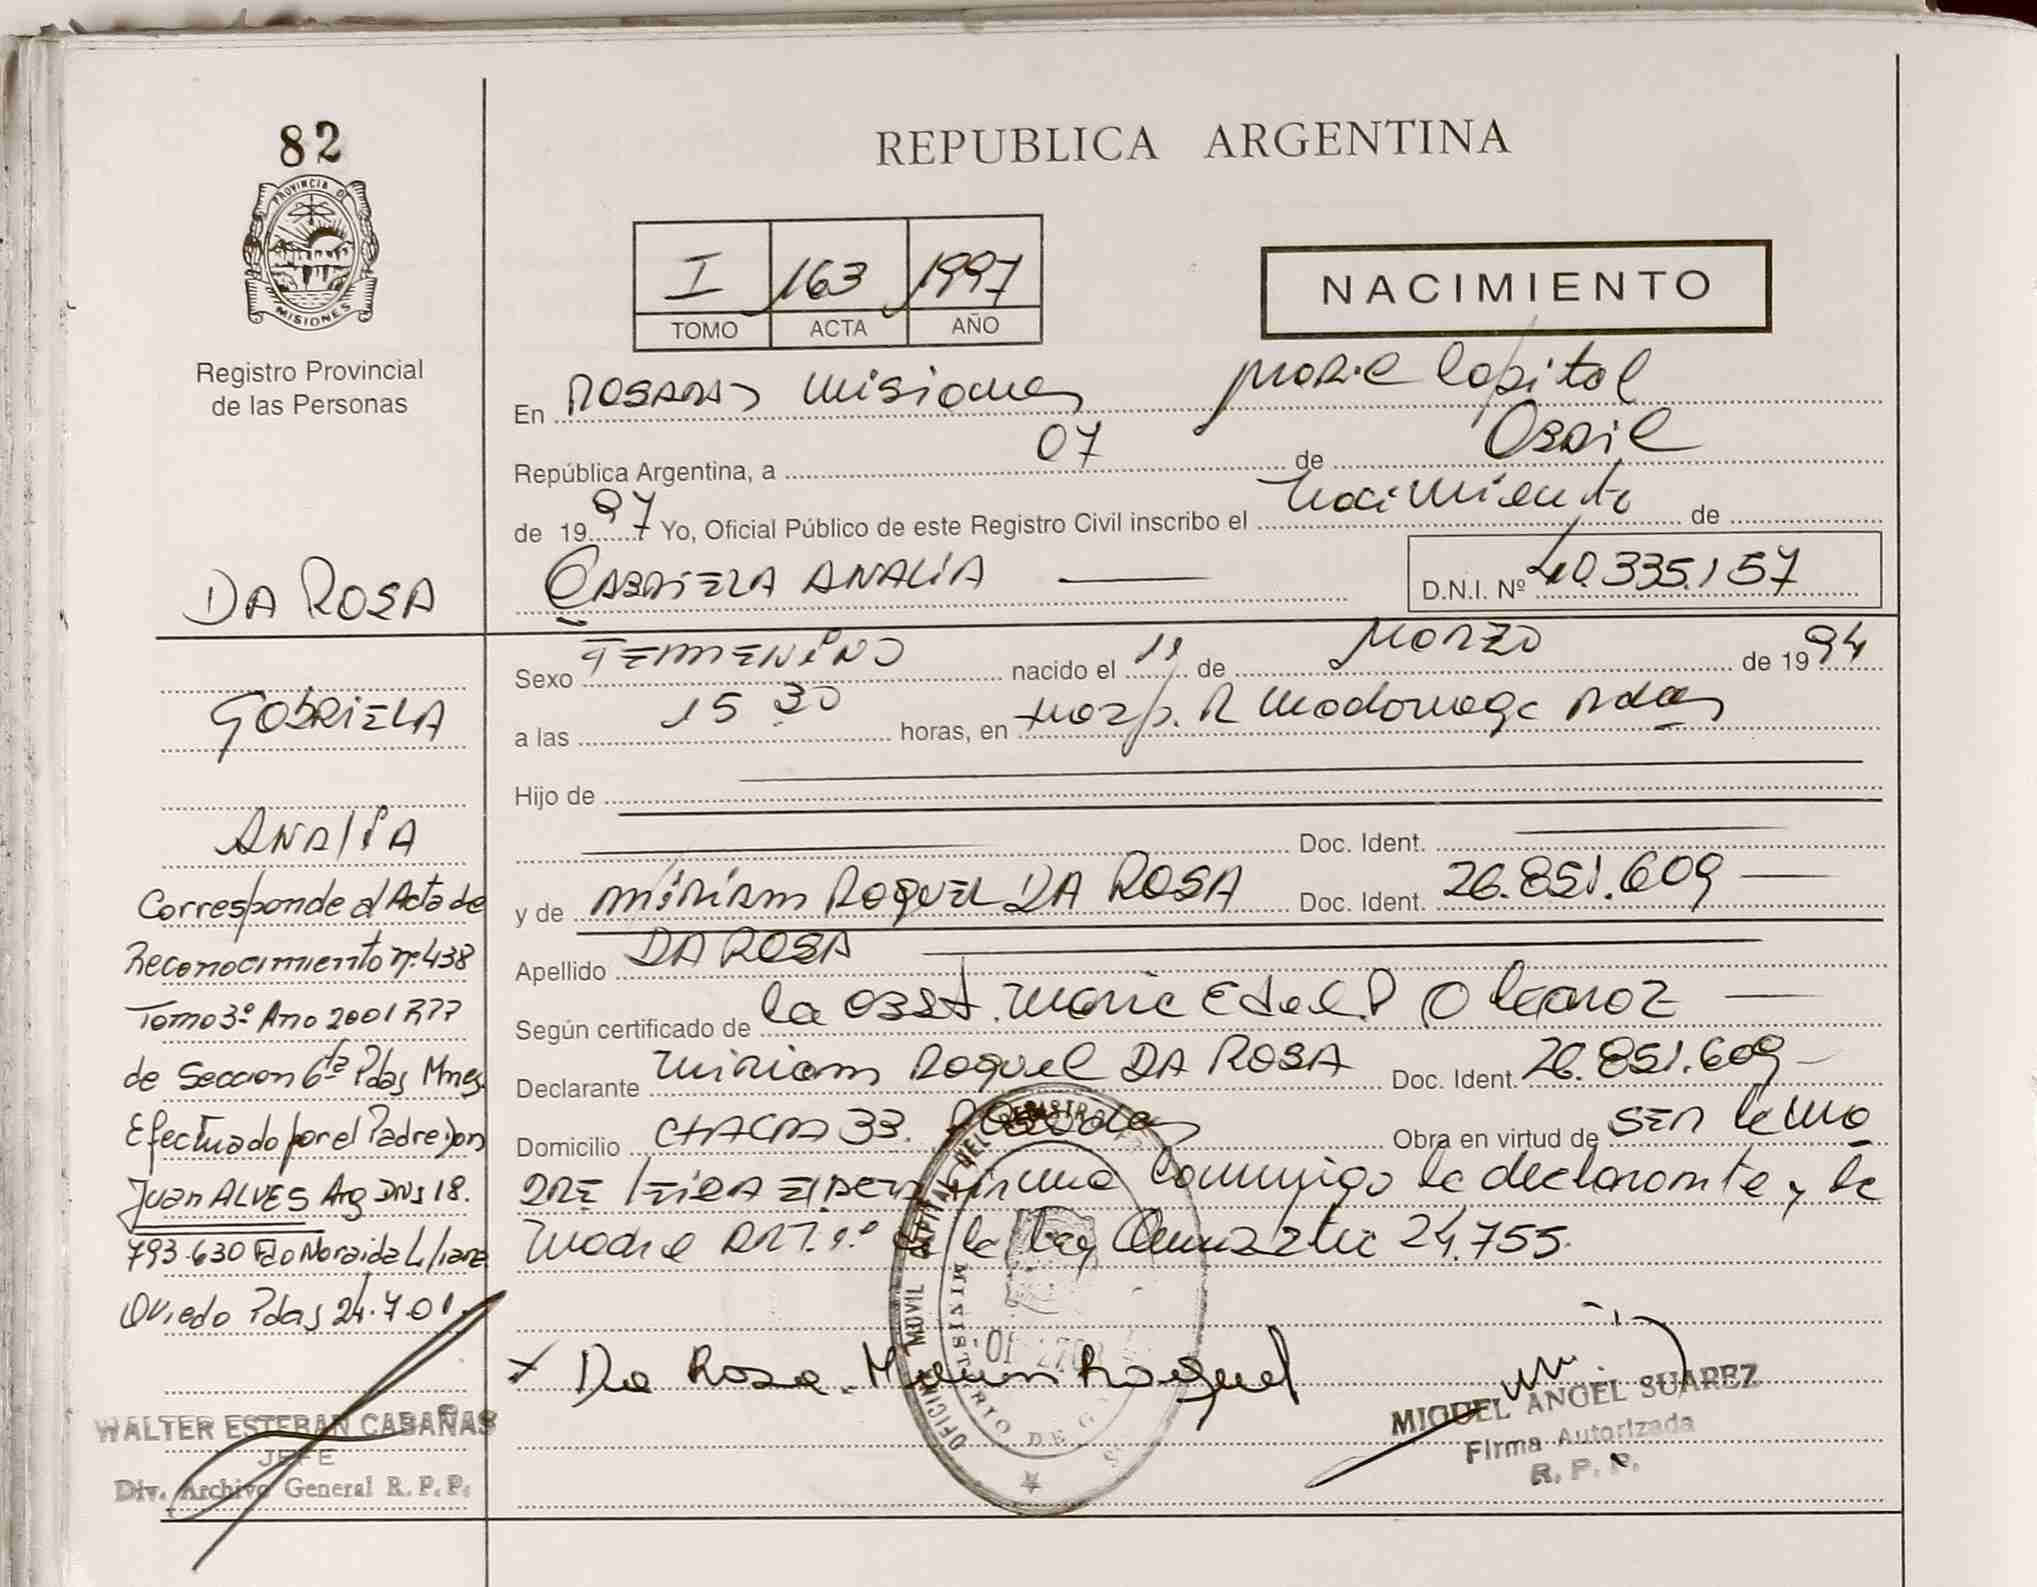 82
PROVINCIA DE
MISIONES
Registro Provincial
de las Personas
REPUBLICA ARGENTINA
I 163 1997
TOMO ACTA AÑO
NACIMIENTO
En POSADAS Misiones
República Argentina, a 07 de Abril
de 1997 Yo, Oficial Público de este Registro Civil inscribo el nacimiento de
DA ROSA
GABRIELA ANALIA
D.N.I. Nº 40.335.157
Sexo FEMENINO nacido el 11 de Marzo de 1994
a las 15 30 horas, en Hosp. R Madariaga Pdas
Hijo de
Doc. Ident.
y de MIRIAM RAQUEL DA ROSA Doc. Ident. 26.851.609
Apellido DA ROSA
Según certificado de la Obst.
Declarante Miriam Raquel DA ROSA Doc. Ident. 26.851.609
Domicilio CHACRA 33. Posadas Obra en virtud de SER la MA
DRE leida el acta firma conmigo la declarante y la
Madre ART. de la ley 24.755.
GABRIELA
ANALIA
Corresponde al Acta de
Reconocimiento nº 438
Tomo 3º Año 2001 RPP
de Seccion 6ta Pdas Mnes.
Efectuado por el Padre Don
Juan ALVES Arg DNI 18.
793.630 Fdo Noraida Liliana
Oviedo Pdas 24.7.01.
WALTER ESTEBAN CABAÑAS
JEFE
Div. Archivo General R.P.P.
Da Rosa Miriam Raquel
OFICINA MOVIL CAPITAL DEL REGISTRO
MINISTERIO DE
MIGUEL ANGEL SUAREZ
Firma Autorizada
R. P. P.